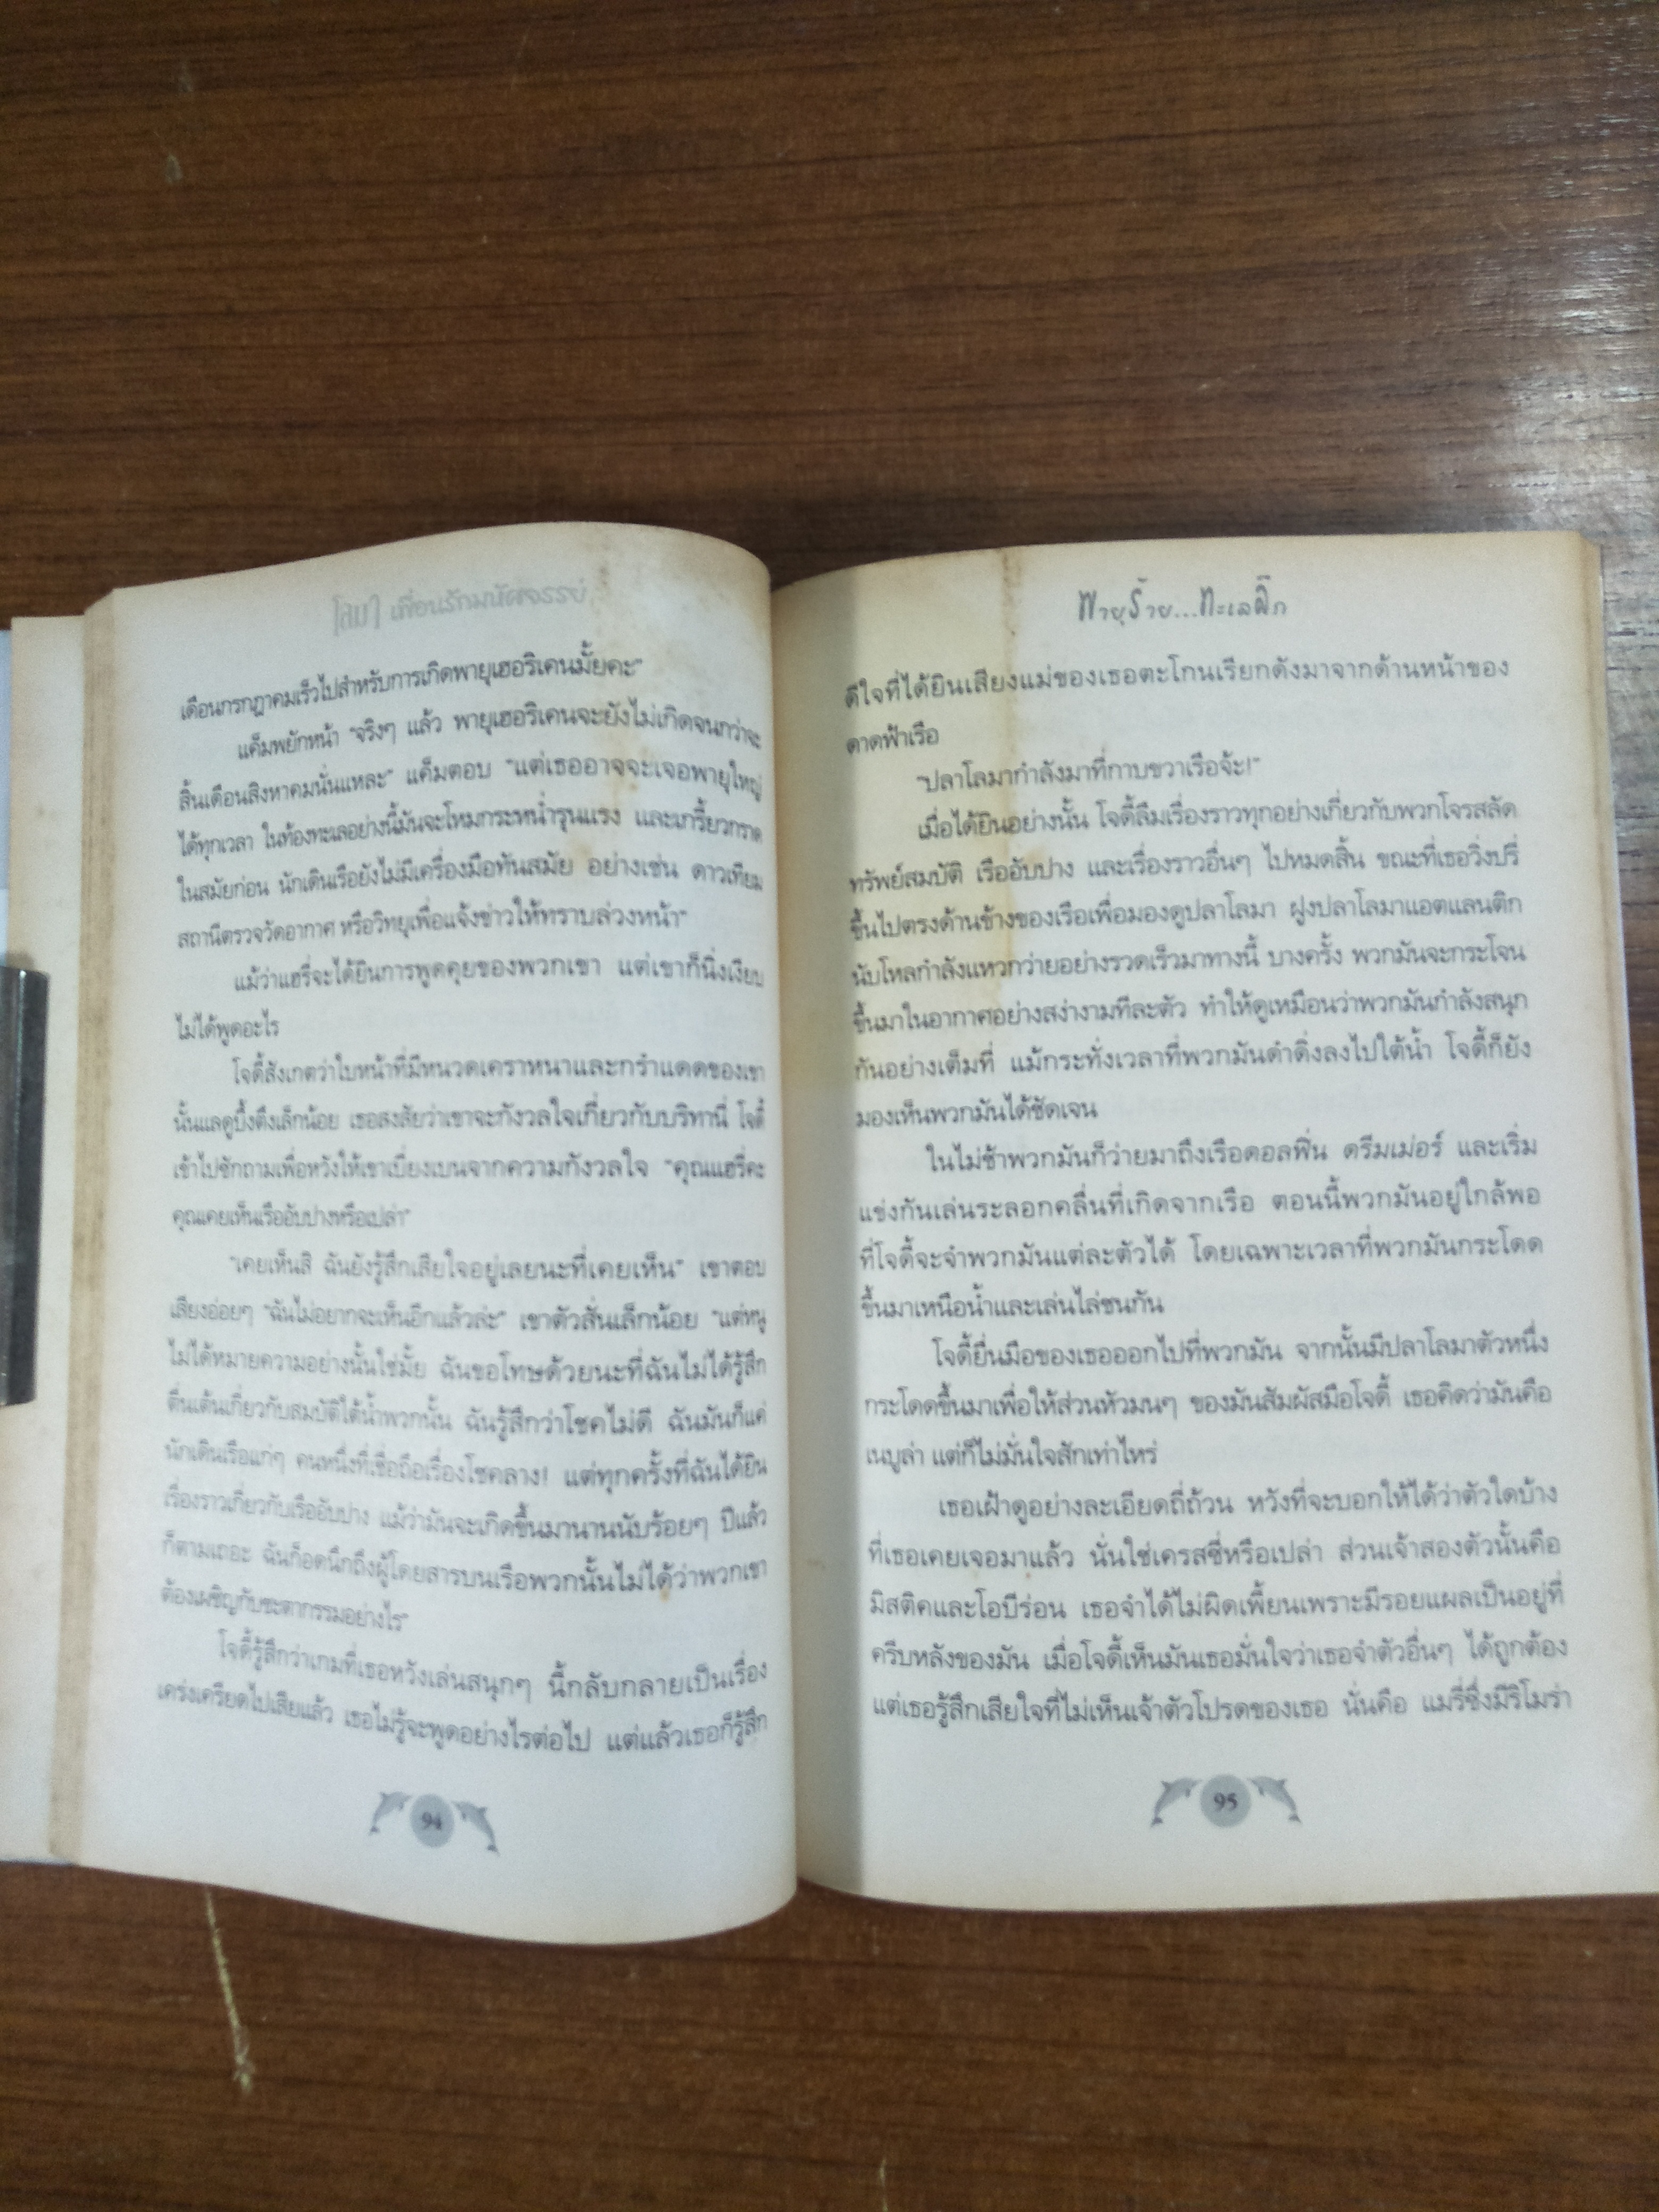 โลมา เพื่อนรักมหัศจรรย์
เดือนกรกฎาคมเร็วไปสำหรับการเกิดพายุเฮอริเคนมั้ยคะ"
แค็มพยักหน้า "จริงๆ แล้ว พายุเฮอริเคนจะยังไม่เกิดจนกว่าจะ
สิ้นเดือนสิงหาคมนั่นแหละ" แค็มตอบ "แต่เธออาจจะเจอพายุใหญ่
ได้ทุกเวลา ในท้องทะเลอย่างนี้มันจะโหมกระหน่ำรุนแรง และเกรี้ยวกราด
ในสมัยก่อน นักเดินเรือยังไม่มีเครื่องมือทันสมัย อย่างเช่น ดาวเทียม
สถานีตรวจวัดอากาศ หรือวิทยุเพื่อแจ้งข่าวให้ทราบล่วงหน้า"
แม้ว่าแฮรี่จะได้ยินการพูดคุยของพวกเขา แต่เขาก็นิ่งเงียบ
ไม่ได้พูดอะไร
โจดี้สังเกตว่าใบหน้าที่มีหนวดเคราหนาและกรำแดดของเขา
นั้นแลดูบึ้งตึงเล็กน้อย เธอสงสัยว่าเขาจะกังวลใจเกี่ยวกับบริทานี่ โจดี้
เข้าไปซักถามเพื่อหวังให้เขาเบี่ยงเบนจากความกังวลใจ "คุณแฮรี่คะ
คุณเคยเห็นเรืออับปางหรือเปล่า"
"เคยเห็นสิ ฉันยังรู้สึกเสียใจอยู่เลยนะที่เคยเห็น" เขาตอบ
เสียงอ่อยๆ "ฉันไม่อยากจะเห็นอีกแล้วล่ะ" เขาตัวสั่นเล็กน้อย "แต่หนู
ไม่ได้หมายความอย่างนั้นใช่มั้ย ฉันขอโทษด้วยนะที่ฉันไม่ได้รู้สึก
ตื่นเต้นเกี่ยวกับสมบัติใต้น้ำพวกนั้น ฉันรู้สึกว่าโชคไม่ดี ฉันมันก็แค่
นักเดินเรือแก่ๆ คนหนึ่งที่เชื่อถือเรื่องโชคลาง! แต่ทุกครั้งที่ฉันได้ยิน
เรื่องราวเกี่ยวกับเรืออับปาง แม้ว่ามันจะเกิดขึ้นมานานนับร้อยๆ ปีแล้ว
ก็ตามเถอะ ฉันก็อดนึกถึงผู้โดยสารบนเรือพวกนั้นไม่ได้ว่าพวกเขา
ต้องเผชิญกับชะตากรรมอย่างไร"
โจดี้รู้สึกว่าเกมที่เธอหวังเล่นสนุกๆ นี้กลับกลายเป็นเรื่อง
เคร่งเครียดไปเสียแล้ว เธอไม่รู้จะพูดอย่างไรต่อไป แต่แล้วเธอก็รู้สึก
94
พายุร้าย...ทะเลลึก
ดีใจที่ได้ยินเสียงแม่ของเธอตะโกนเรียกดังมาจากด้านหน้าของ
ดาดฟ้าเรือ
"ปลาโลมากำลังมาที่กาบขวาเรือจ้ะ!"
เมื่อได้ยินอย่างนั้น โจดี้ลืมเรื่องราวทุกอย่างเกี่ยวกับพวกโจรสลัด
ทรัพย์สมบัติ เรืออับปาง และเรื่องราวอื่นๆ ไปหมดสิ้น ขณะที่เธอวิ่งปรี่
ขึ้นไปตรงด้านข้างของเรือเพื่อมองดูปลาโลมา ฝูงปลาโลมาแอตแลนติก
นับโหลกำลังแหวกว่ายอย่างรวดเร็วมาทางนี้ บางครั้ง พวกมันจะกระโจน
ขึ้นมาในอากาศอย่างสง่างามทีละตัว ทำให้ดูเหมือนว่าพวกมันกำลังสนุก
กันอย่างเต็มที่ แม้กระทั่งเวลาที่พวกมันดำดิ่งลงไปใต้น้ำ โจดี้ก็ยัง
มองเห็นพวกมันได้ชัดเจน
ในไม่ช้าพวกมันก็ว่ายมาถึงเรือดอลฟิน ดรีมเม่อร์ และเริ่ม
แข่งกันเล่นระลอกคลื่นที่เกิดจากเรือ ตอนนี้พวกมันอยู่ใกล้พอ
ที่โจดี้จะจำพวกมันแต่ละตัวได้ โดยเฉพาะเวลาที่พวกมันกระโดด
ขึ้นมาเหนือน้ำและเล่นไล่ชนกัน
โจดี้ยื่นมือของเธอออกไปที่พวกมัน จากนั้นมีปลาโลมาตัวหนึ่ง
กระโดดขึ้นมาเพื่อให้ส่วนหัวมนๆ ของมันสัมผัสมือโจดี้ เธอคิดว่ามันคือ
เนบูล่า แต่ก็ไม่มั่นใจสักเท่าไหร่
เธอเฝ้าดูอย่างละเอียดถี่ถ้วน หวังที่จะบอกให้ได้ว่าตัวใดบ้าง
ที่เธอเคยเจอมาแล้ว นั่นใช่เครสซี่หรือเปล่า ส่วนเจ้าสองตัวนั้นคือ
มิสติคและโอบีร่อน เธอจำได้ไม่ผิดเพี้ยนเพราะมีรอยแผลเป็นอยู่ที่
ครีบหลังของมัน เมื่อโจดี้เห็นมันเธอมั่นใจว่าเธอจำตัวอื่นๆ ได้ถูกต้อง
แต่เธอรู้สึกเสียใจที่ไม่เห็นเจ้าตัวโปรดของเธอ นั่นคือ แมรี่ซึ่งมีริโมร่า
95